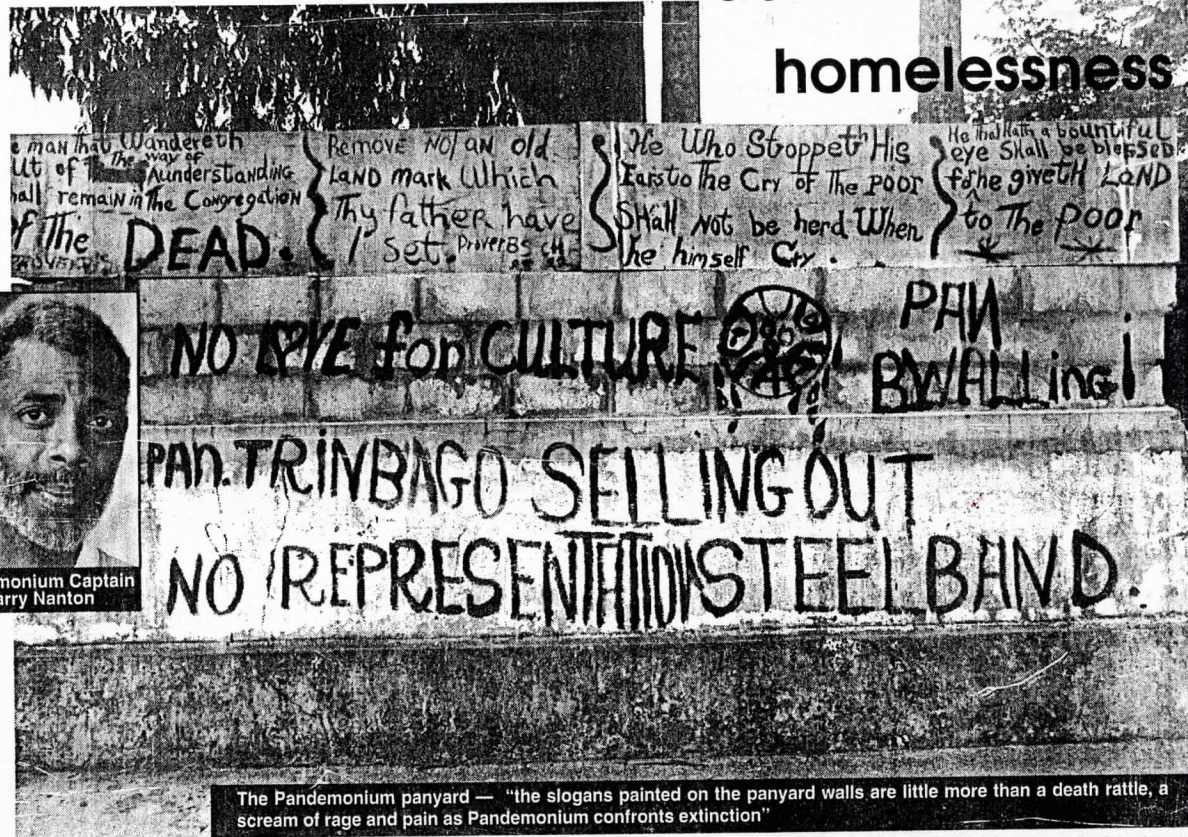 homelessness
e maN That Wandereth
ut of The way of
understanding
hall remain in The Congregation
of The DEAD.
PROVERBS
Remove NOT aN old
LaND mark Which
Thy father have
set. ProverBS CH
He Who Stoppet His
Ears to The Cry of The POOR
SHall Not be herd When
he himself Cry.
He that Hath a bountiful
eye SHall be blessed
for he giveTH LaND
to The Poor
NO LOVE for CULTURE
PAN
BWALLing!
PAN.TRINBAGO SELLING OUT
NO REPRESENTATION STEELBAND.
monium Captain
arry Nanton
The Pandemonium panyard — “the slogans painted on the panyard walls are little more than a death rattle, a
scream of rage and pain as Pandemonium confronts extinction”